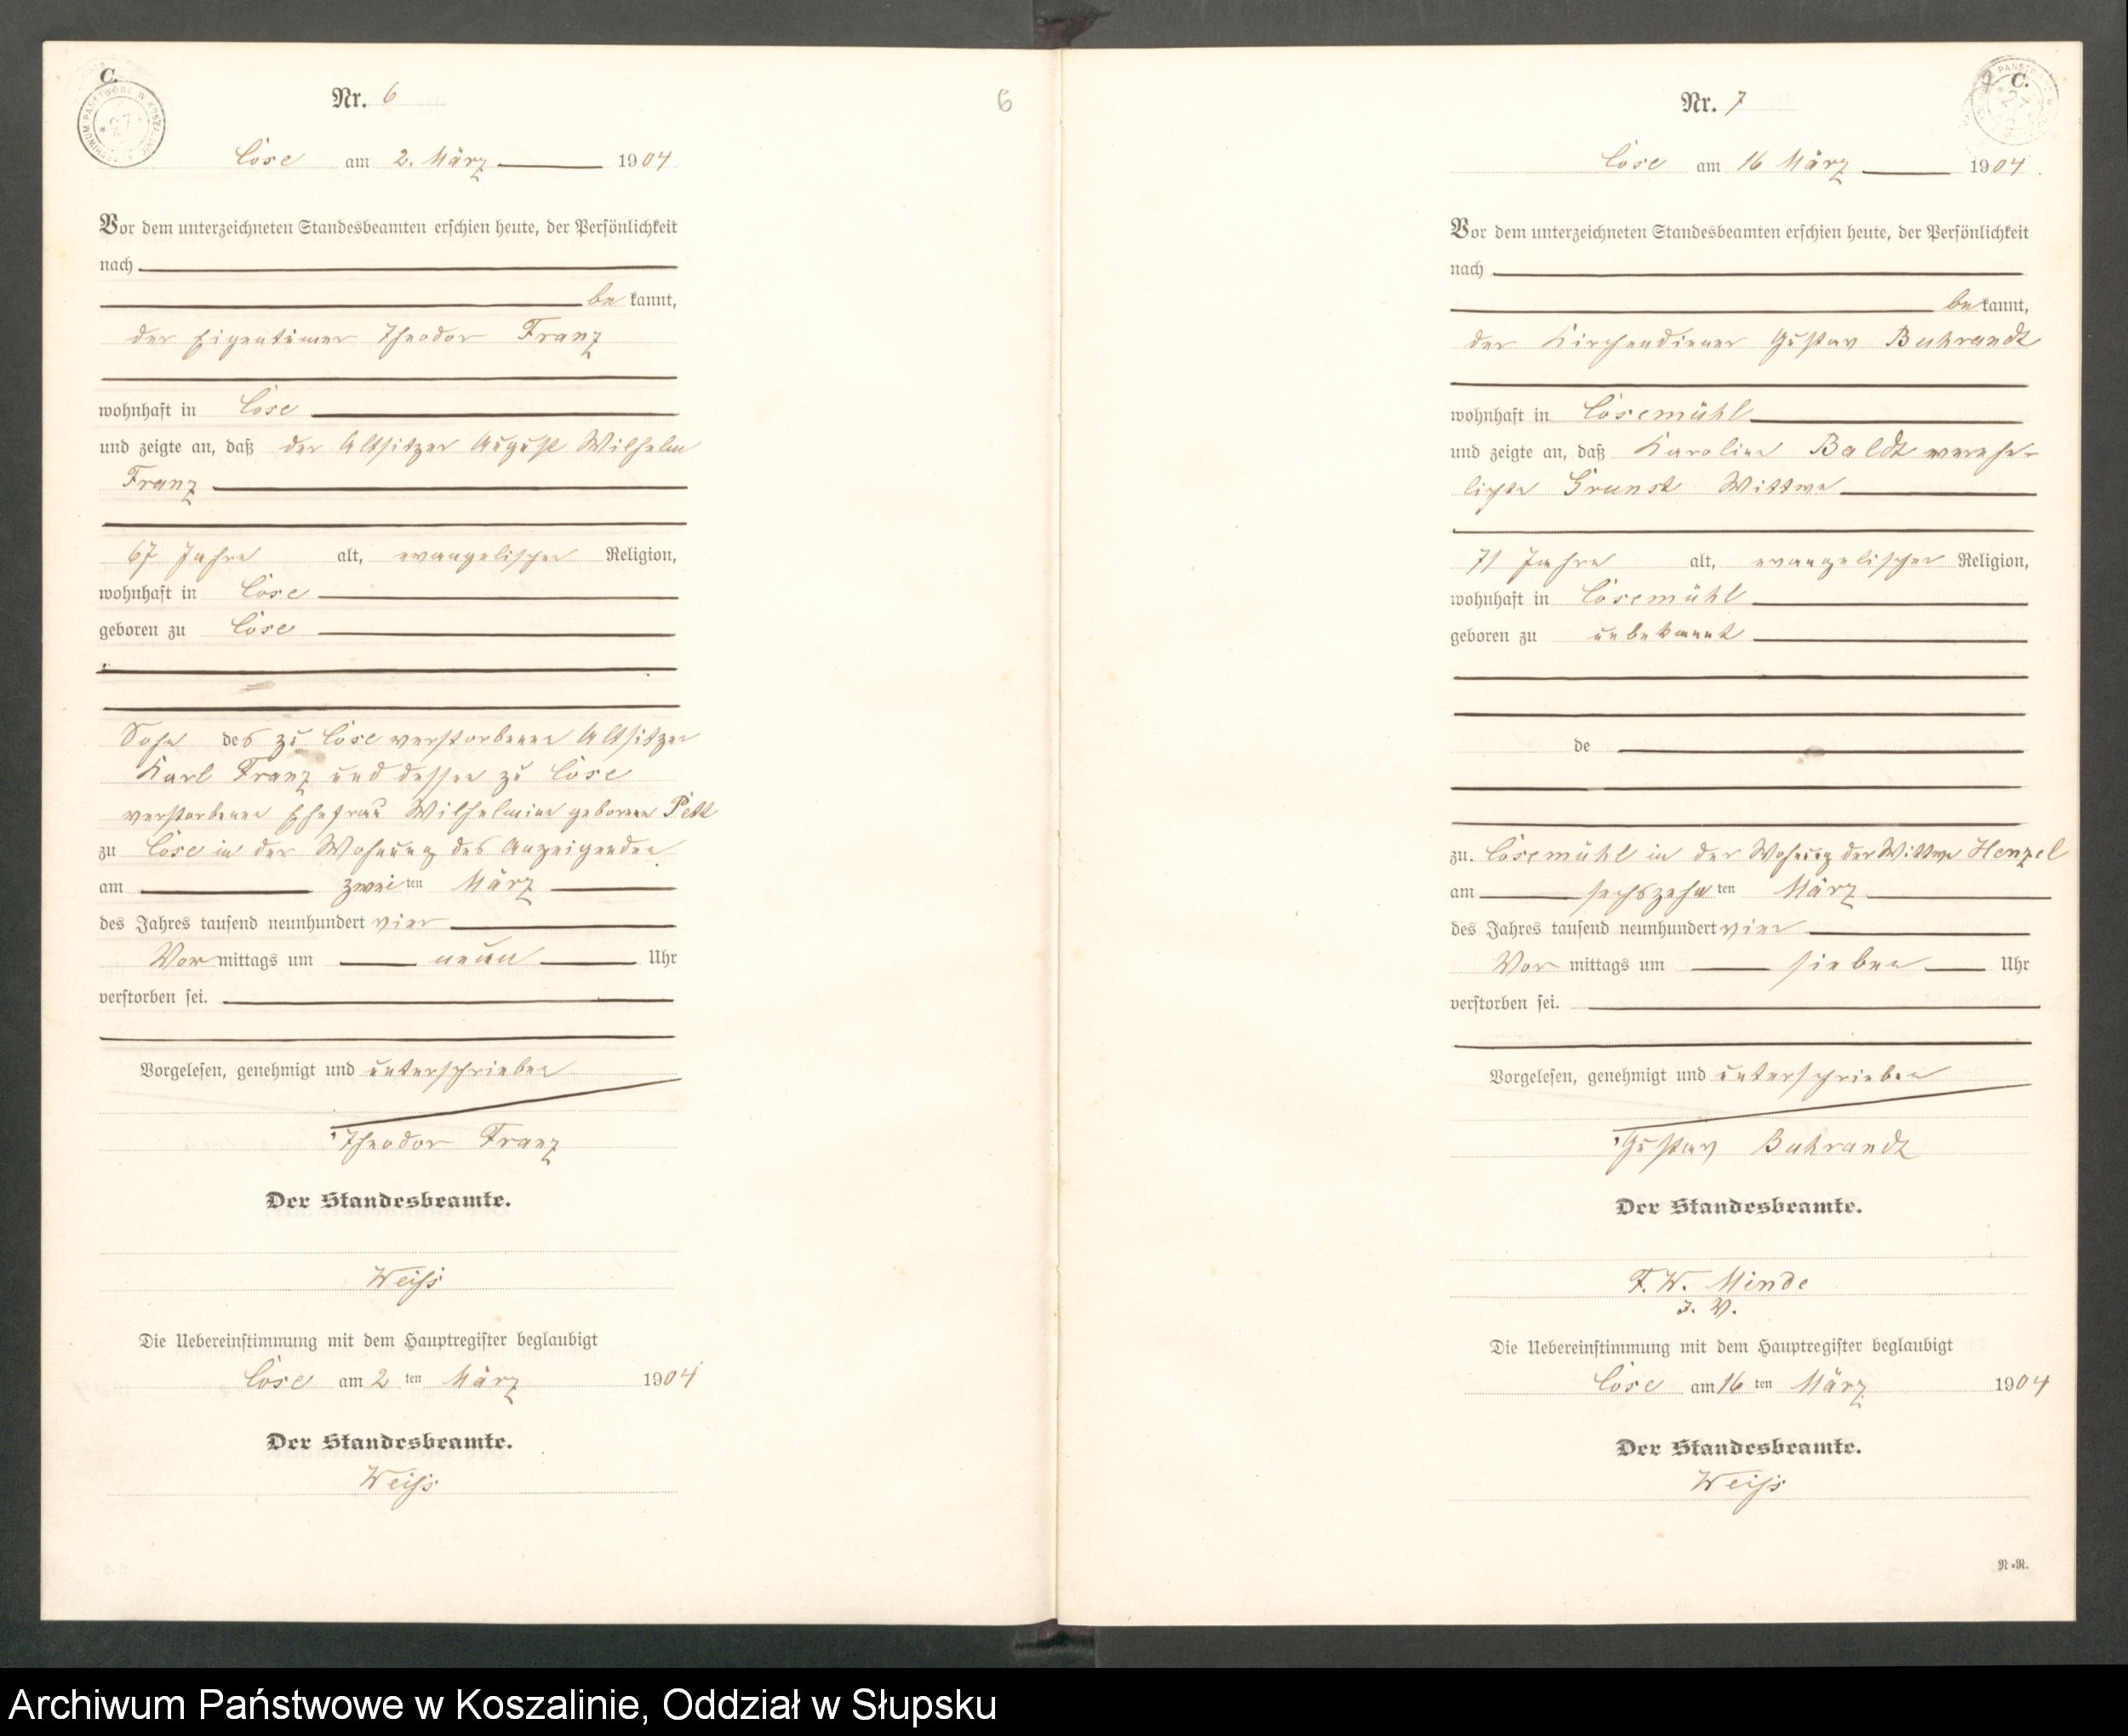 C.
Nr. 6
Löse am 2. März 1904
Vor dem unterzeichneten Standesbeamten erschien heute, der Persönlichkeit
nach
be kannt,
der Eigentümer Theodor Franz
wohnhaft in Löse
und zeigte an, daß der Altsitzer August Wilhelm
Franz
67 Jahre alt, evangelischer Religion,
wohnhaft in Löse
geboren zu Löse
Sohn des zu Löse verstorbenen Altsitzer
Karl Franz und dessen zu Löse
verstorbenen Ehefrau Wilhelmine geborene
zu Löse in der Wohnung des Anzeigenden
am zweiten März
des Jahres tausend neunhundert vier
Vormittags um neun Uhr
verstorben sei.
Vorgelesen, genehmigt und unterschrieben
Theodor Franz
Der Standesbeamte.
Weiss
Die Uebereinstimmung mit dem Hauptregister beglaubigt
Löse am 2 ten März 1904
Der Standesbeamte.
Weiss
6
C.
Nr. 7
Löse am 16 März 1904.
Vor dem unterzeichneten Standesbeamten erschien heute, der Persönlichkeit
nach
be kannt,
der Kirchendiener Gustav Buhrandt
wohnhaft in Lösemühl
und zeigte an, daß Karoline Baldt verehe-
lichte Grunst Wittwe
71 Jahre alt, evangelischer Religion,
wohnhaft in Lösemühl
geboren zu unbekannt
de
zu. Lösemühl in der Wohnung der Wittwe Henzel
am sechszehn ten März
des Jahres tausend neunhundert vier
Vor mittags um sieben Uhr
verstorben sei.
Vorgelesen, genehmigt und unterschrieben
Gustav Buhrandt
Der Standesbeamte.
F. W. Minde
J. V.
Die Uebereinstimmung mit dem Hauptregister beglaubigt
Löse am 16 ten März 1904
Der Standesbeamte.
Weiss
N.=N.
Archiwum Państwowe w Koszalinie, Oddział w Słupsku